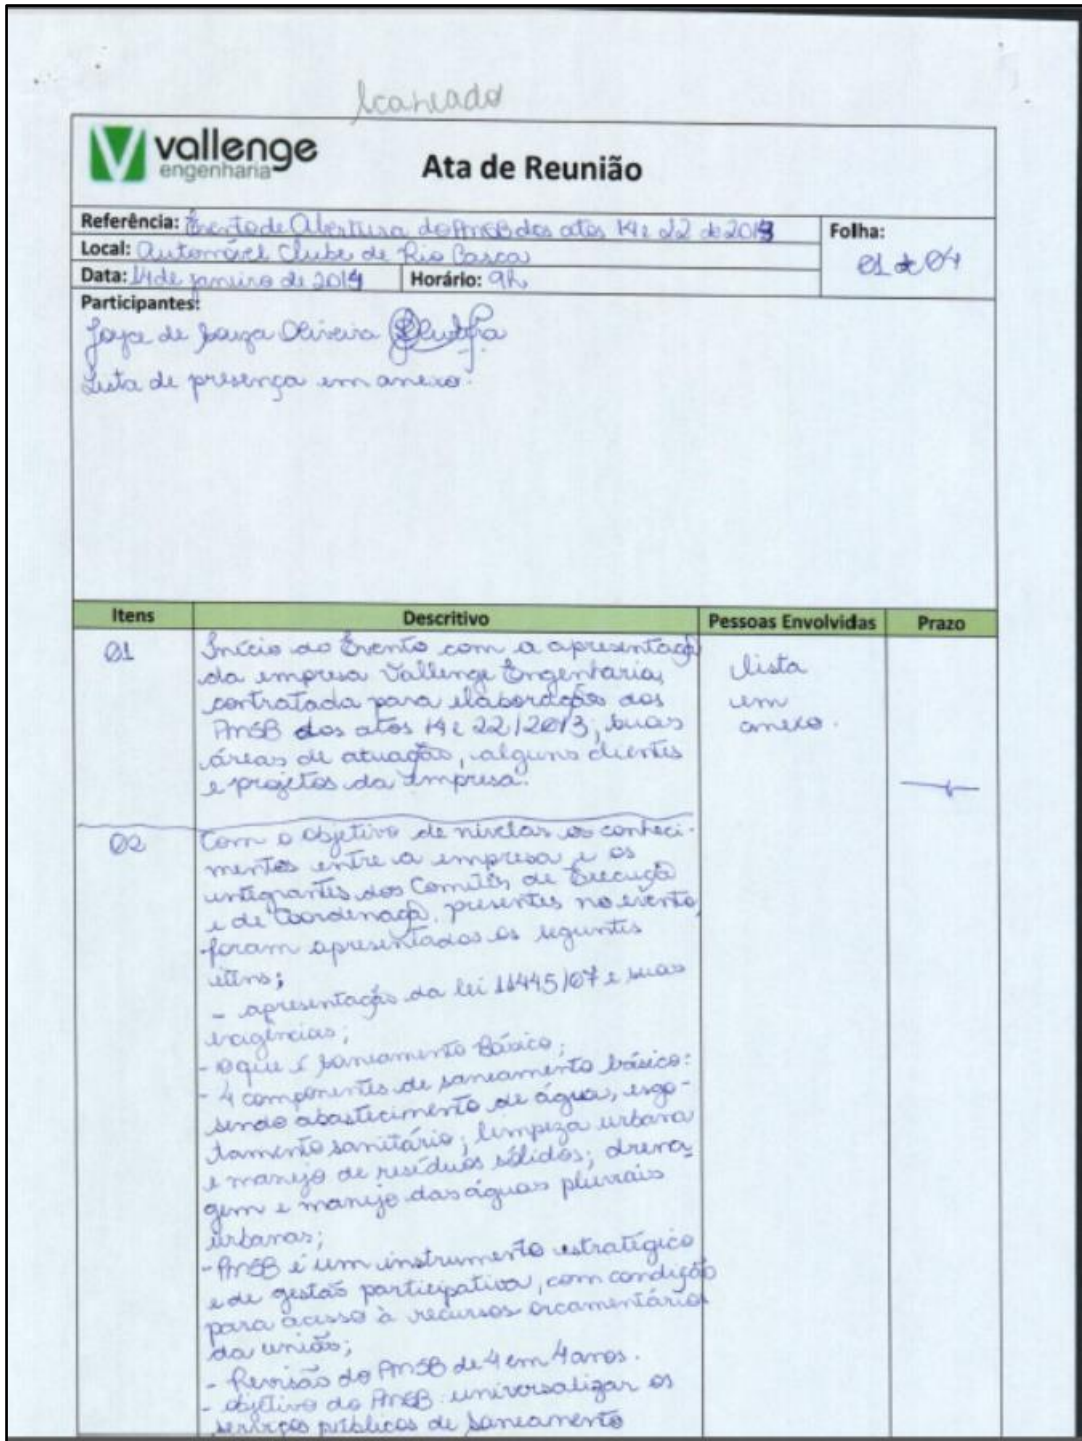 scaneado
vallenge
engenharia
Ata de Reunião
Referência: Evento de Abertura do PMSB dos atos 14 e 22 de 2013
Folha:
01 de 04
Local: Automóvel Clube de Rio Casca
Data: 14 de janeiro de 2014 Horário: 9h
Participantes:
Joyce de Souza Oliveira
Lista de presença em anexo.
Itens Descritivo Pessoas Envolvidas Prazo
01 Início do Evento com a apresentaçã
da empresa Vallenge Engenharia,
contratada para elaboração dos
PMSB dos atos 14 e 22/2013, suas
áreas de atuação, alguns clientes
e projetos da empresa.
lista
em
anexo.
02 Com o objetivo de nivelar os conheci-
mentos entre a empresa e os
integrantes dos Comitês de Execuçã
e de Coordenaçã, presentes no evento,
foram apresentados os seguintes
itens;
- apresentação da lei 11445/07 e suas
exigências;
- O que é Saneamento Básico;
- 4 componentes de saneamento básico:
sendo abastecimento de água, esgo-
tamento sanitário; limpeza urbana
e manejo de resíduos sólidos; drena-
gem e manejo das águas pluviais
urbanas;
- PMSB é um instrumento estratégico
e de gestão participativa, com condição
para acesso à recursos orcamentários
da união;
- Revisão do PMSB de 4 em 4 anos.
- objetivo do PMSB: universalizar os
serviços públicos de saneamento